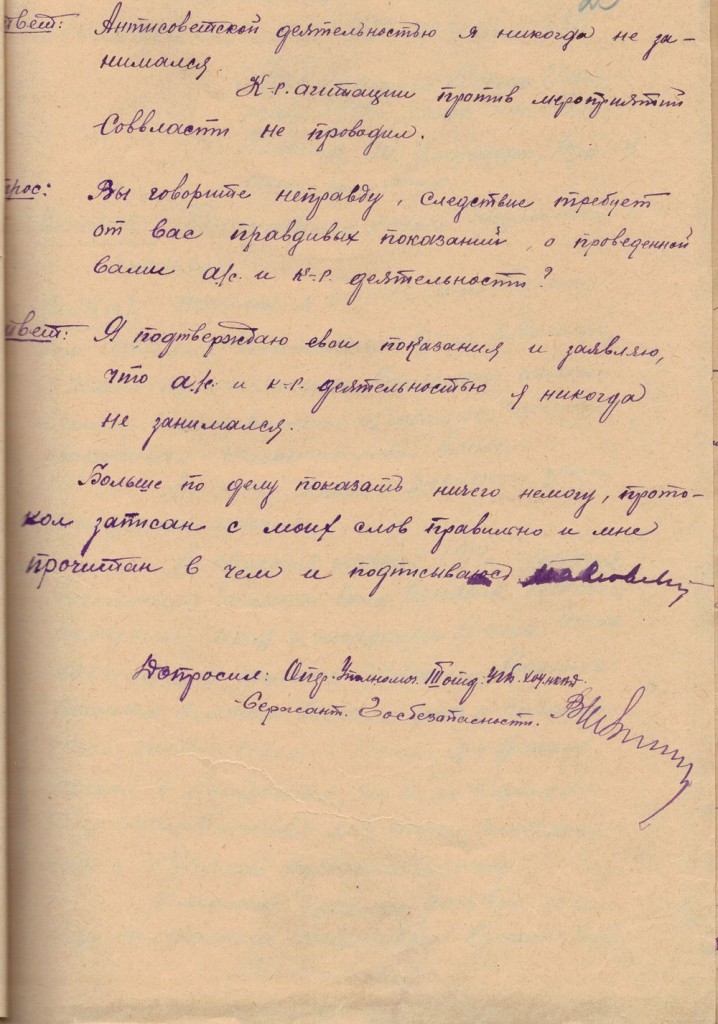 твет: Антисоветской деятельностью я никогда не за-
нимался.
К-р. агитации против мероприятий
Соввласти не проводил.
прос: Вы говорите неправду, следствие требует
от вас правдивых показаний, о проведенной
вами а/с. и к-р. деятельности?
твет: Я подтверждаю свои показания и заявляю,
что а/с. и к-р. деятельностью я никогда
не занимался.
Больше по делу показать ничего немогу, прото-
кол записан с моих слов правильно и мне
прочитан в чем и подписываюсь
Допросил: Опер. Уполномоч. III отд. УГБ. ХОУНКВД.
Сержант. Госбезопасности.